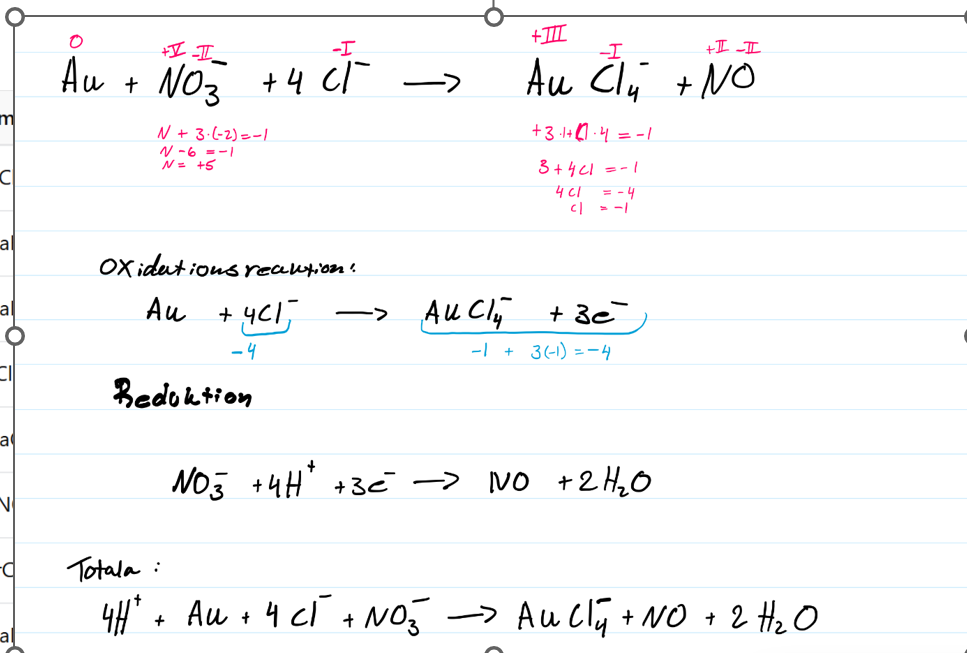 0 +V -II -I +III -I +II -II
Au + NO₃⁻ + 4 Cl⁻ → AuCl₄⁻ + NO
N + 3·(-2) = -1
N - 6 = -1
N = +5
+3·1+Cl·4 = -1
3 + 4Cl = -1
4Cl = -4
Cl = -1
Oxidationsreaktion:
Au + 4Cl⁻ → AuCl₄⁻ + 3e⁻
-4 -1 + 3(-1) = -4
Reduktion
NO₃⁻ + 4H⁺ + 3e⁻ → NO + 2H₂O
Totala :
4H⁺ + Au + 4 Cl⁻ + NO₃⁻ → AuCl₄⁻ + NO + 2 H₂O